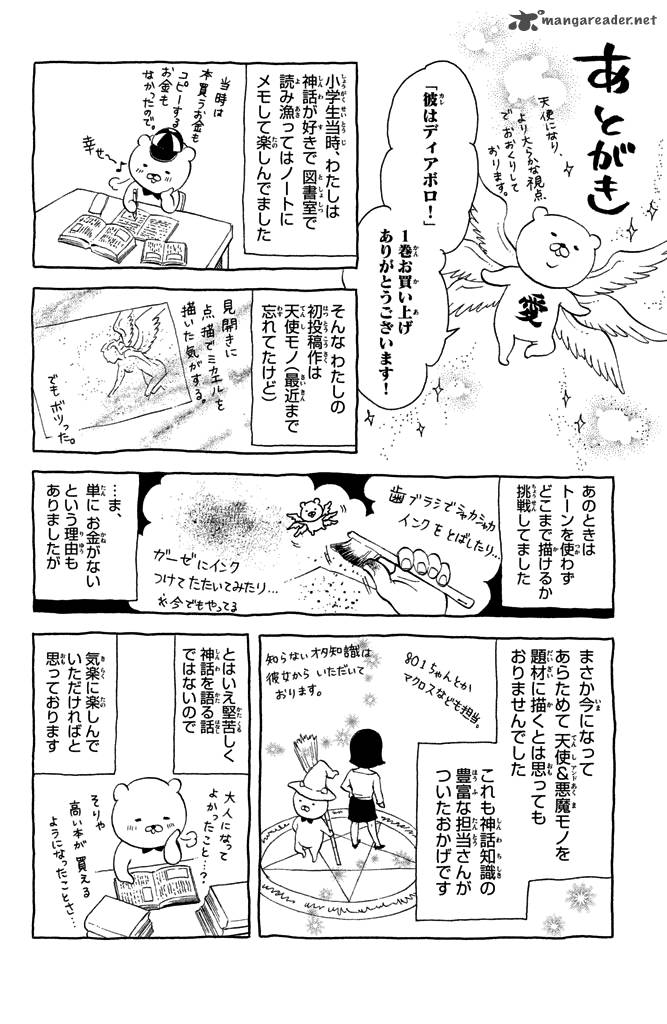 mangareader.net
あとがき
天使になり、
より大らかな視点
でおおくりして
おります。
「彼はディアボロ！」
1巻お買い上げ
ありがとうございます！
愛
小学生当時、わたしは
神話が好きで図書室で
読み漁ってはノートに
メモして楽しんでました
当時は
本買うお金も
コピーする
お金も
なかったので。
幸せ〜♪
そんなわたしの
初投稿作は
天使モノ（最近まで
忘れてたけど）
見開きに
点描でミカエルを
描いた気がする。
でもボツった。
あのときは
トーンを使わず
どこまで描けるか
挑戦してました
歯ブラシでシャカシャカ
インクをとばしたり…
ガーゼにインク
つけてたたいてみたり…
※今でもやってる
…ま、
単にお金がない
という理由も
ありましたが
まさか今になって
あらためて天使&悪魔モノを
題材に描くとは思っても
おりませんでした
これも神話知識の
豊富な担当さんが
ついたおかげです
801ちゃんとか
マクロスなども担当。
知らないオタ知識は
彼女からいただいて
おります。
とはいえ堅苦しく
神話を語る話
ではないので
気楽に楽しんで
いただければと
思っております
大人になって
よかったこと…？
そりゃ
高い本が買える
ようになったことさ…